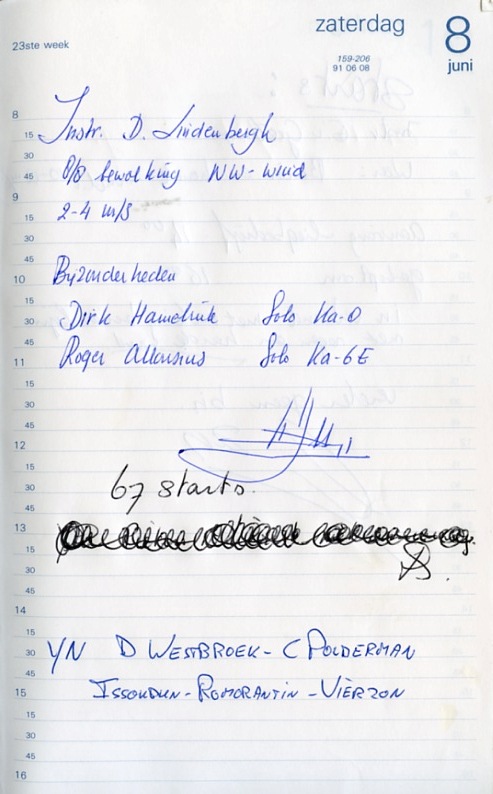 zaterdag 8
23ste week
159-206
91 06 08
juni
8
15 Instr. D. Lindenbergh
30
45 8/8 bewolking NW-wind
9
15 2-4 m/s
30
45
10 Bijzonderheden
15
30 Dirk Solo Ka-
45
11 Roger Solo Ka-6E
15
30
45
12
15
30 67 starts.
45
13
15
30
45
14
15
30 YN D WESTBROEK - C POLDERMAN
45
15 ISSOUDUN - ROMORANTIN - VIÈRZON
15
30
45
16